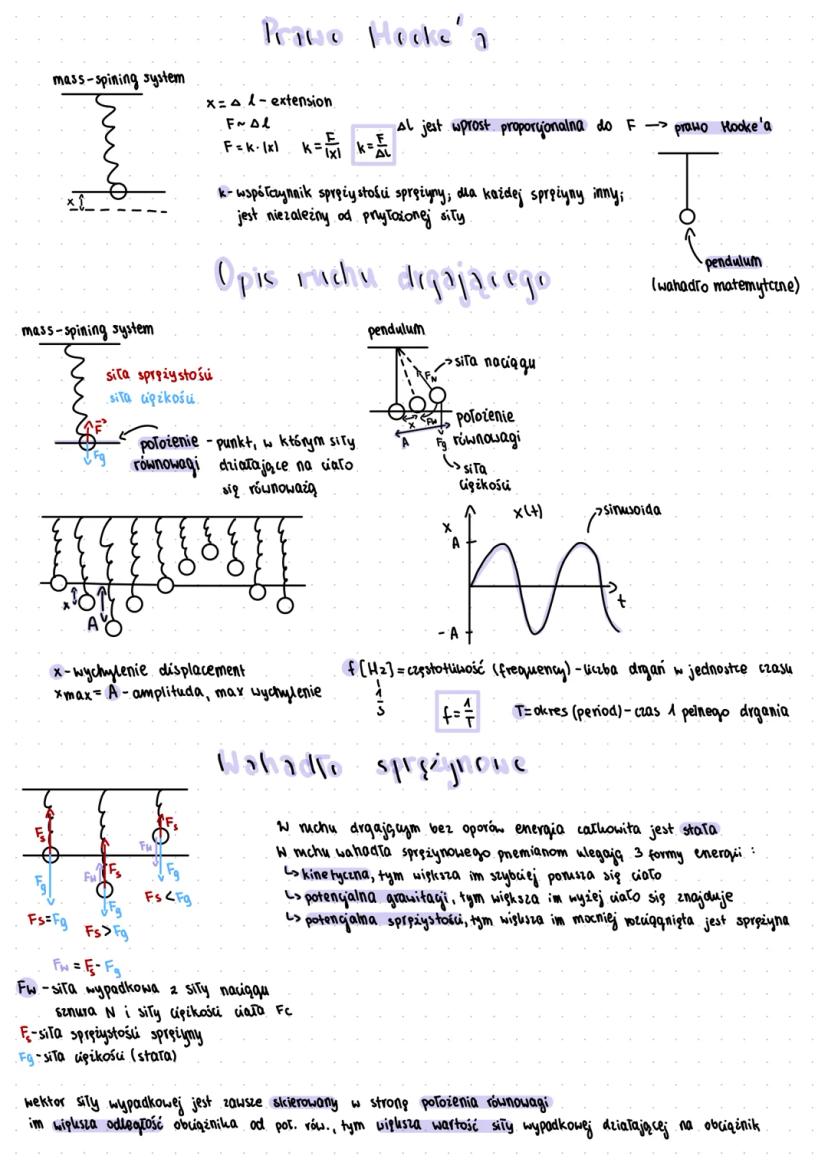 Prawo Hooke'a
mass-spining system
x = Δ l - extension
F ~ Δ l
F = k · |x|
k = F/|x|
k = F/Δl
Δl jest wprost proporcjonalna do F → prawo Hooke'a
x
k - współczynnik sprężystości sprężyny; dla każdej sprężyny inny;
jest niezależny od przyłożonej siły
pendulum
(wahadło matemytczne)
Opis ruchu drgającego
mass-spining system
siła sprężystości
siła ciężkości
F
Fg
położenie równowagi - punkt, w którym siły
działające na ciało
się równoważą
pendulum
FN
siła naciągu
x
Fw
A
położenie
równowagi
Fg
siła
ciężkości
x
A
x
x(t)
sinusoida
A
t
- A
x - wychylenie displacement
xmax = A - amplituda, max wychylenie
f [Hz] = częstotliwość (frequency) - liczba drgań w jednostce czasu
1/s
f = 1/T
T = okres (period) - czas 1 pełnego drgania
Wahadło sprężynowe
Fs
Fg
Fs=Fg
Fw
Fs
Fg
Fs>Fg
Fs
Fw
Fg
Fs<Fg
W ruchu drgającym bez oporów energia całkowita jest stała
W ruchu wahadła sprężynowego przemianom ulegają 3 formy energii :
↳ kinetyczna, tym większa im szybciej porusza się ciało
↳ potencjalna grawitacji, tym większa im wyżej ciało się znajduje
↳ potencjalna sprężystości, tym większa im mocniej rozciągnięta jest sprężyna
Fw = Fs - Fg
Fw - siła wypadkowa z siły naciągu
sznura N i siły ciężkości ciała Fc
Fs - siła sprężystości sprężyny
Fg - siła ciężkości (stała)
wektor siły wypadkowej jest zawsze skierowany w stronę położenia równowagi
im większa odległość obciążnika od poł. rów., tym większa wartość siły wypadkowej działającej na obciążnik